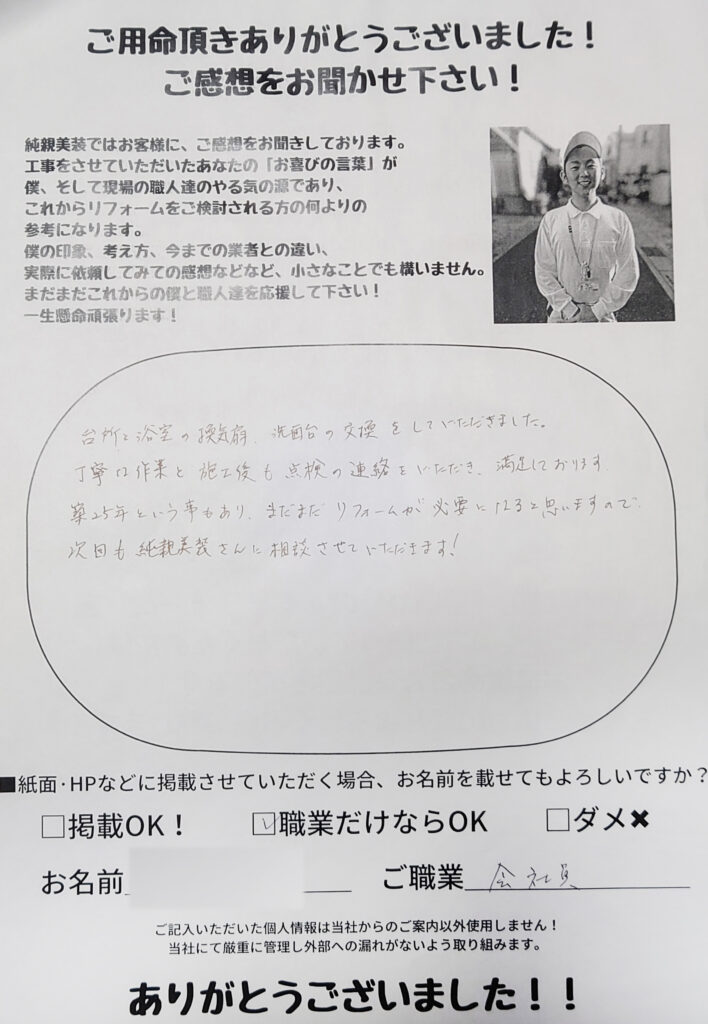 ご用命頂きありがとうございました！
ご感想をお聞かせ下さい！
純親美装ではお客様に、ご感想をお聞きしております。
工事をさせていただいたあなたの「お喜びの言葉」が
僕、そして現場の職人達のやる気の源であり、
これからリフォームをご検討される方の何よりの
参考になります。
僕の印象、考え方、今までの業者との違い、
実際に依頼してみての感想などなど、小さなことでも構いません。
まだまだこれからの僕と職人達を応援して下さい！
一生懸命頑張ります！
台所と浴室の換気扇、洗面台の交換をしていただきました。
丁寧な作業と施工後も点検の連絡をいただき、満足しております。
築25年という事もあり、まだまだリフォームが必要になると思いますので、
次回も純親美装さんに相談させていただきます！
■紙面·HPなどに掲載させていただく場合、お名前を載せてもよろしいですか？
□掲載OK！ ☑職業だけならOK □ダメ✖
お名前 ご職業 会社員
ご記入いただいた個人情報は当社からのご案内以外使用しません！
当社にて厳重に管理し外部への漏れがないよう取り組みます。
ありがとうございました！！